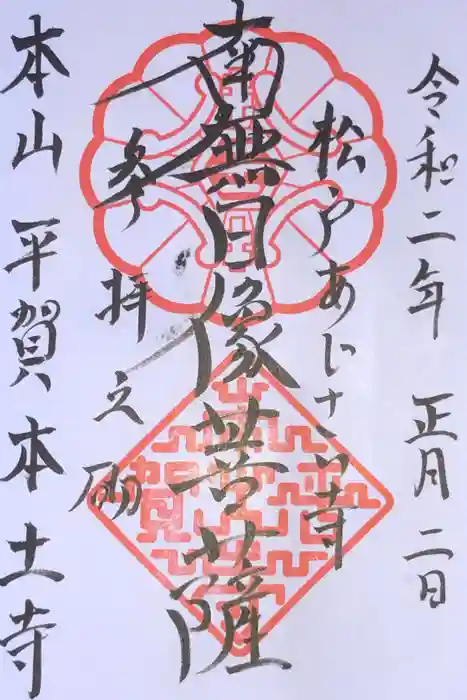 令和二年 正月二日
松戸あじさい寺
南無日像菩薩
参拝之砌
本山 平賀本土寺